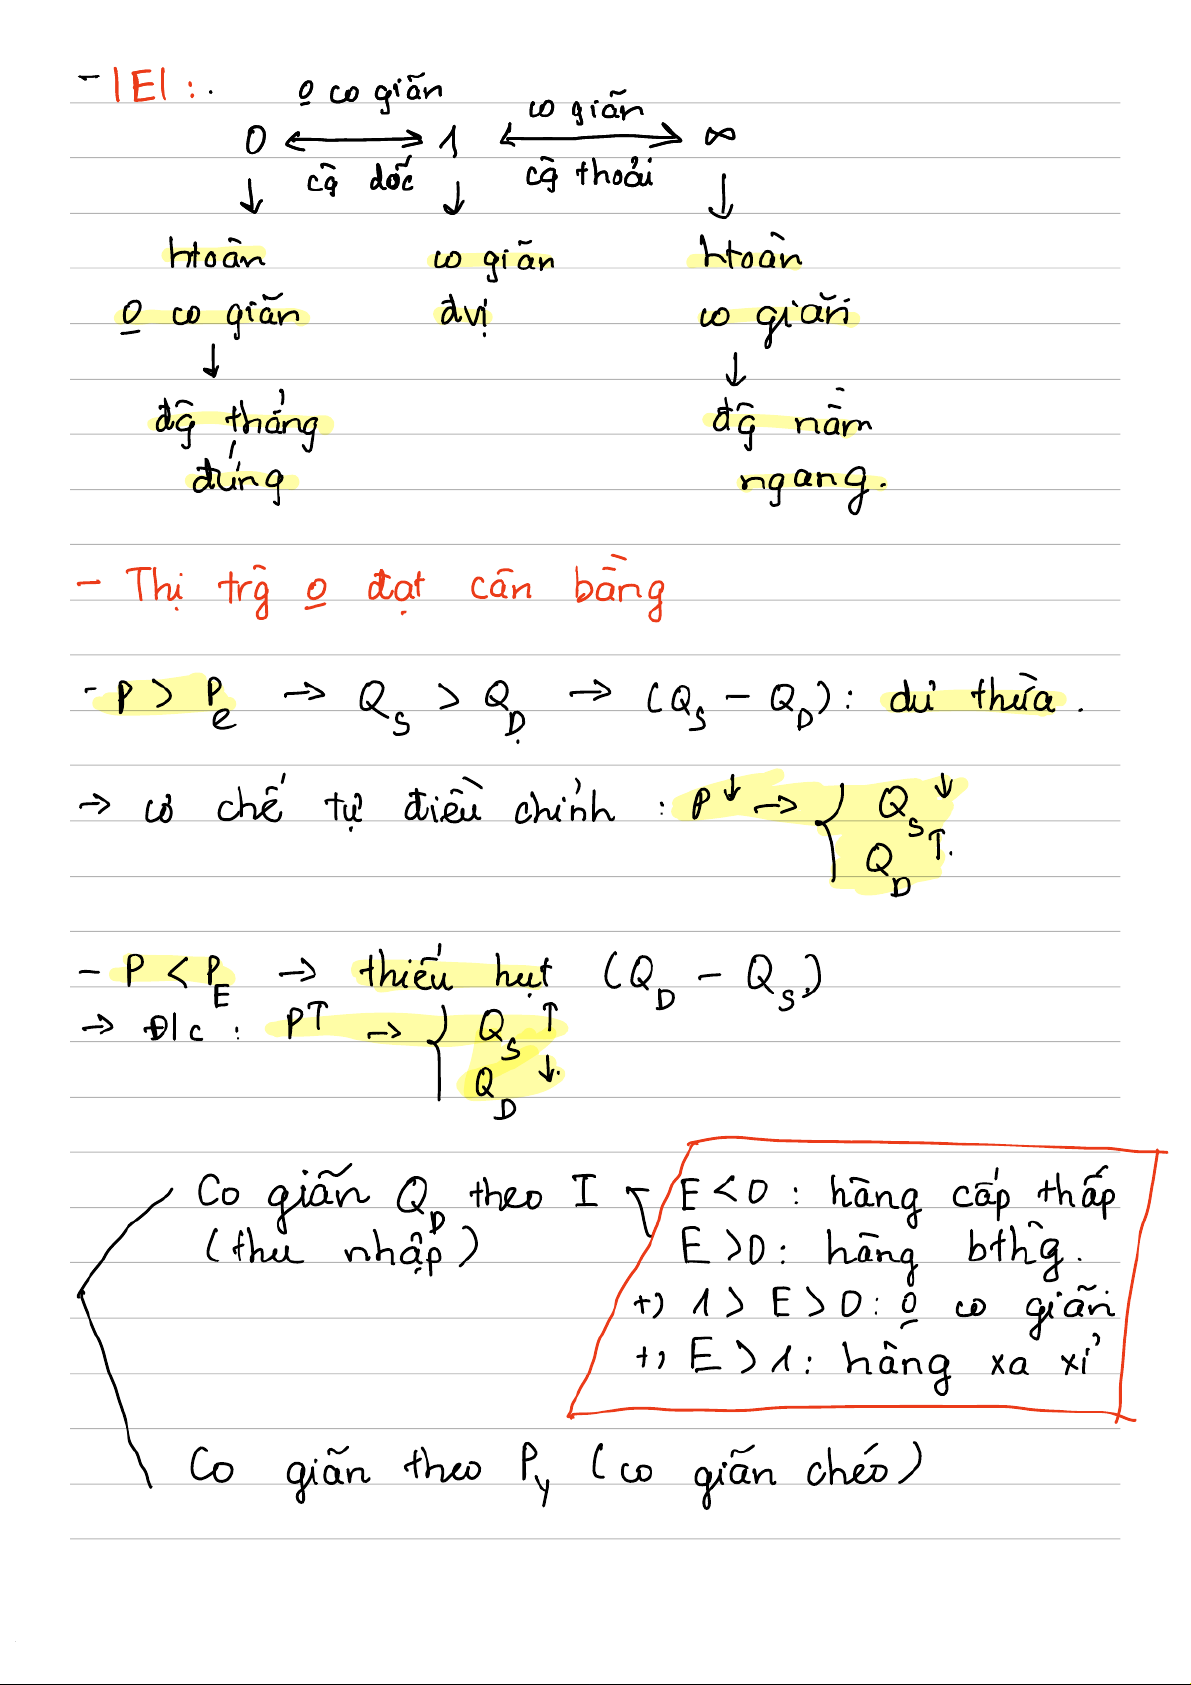 - |E| :.
o̲ co giãn co giãn
0 ⟷ 1 ⟷ ∞
cg̀ dốc cg̀ thoải
↓ ↓ ↓
htoàn co giãn htoàn
o̲ co giãn đvị co giãn
↓ ↓
đg̀ thẳng đg̀ nằm
đứng ngang.
- Thị trg̀ o̲ đạt cân bằng
- P > Pe → QS > QD → (QS - QD): dư thừa.
→ cơ chế tự điều chỉnh : P↓ → } QS ↓
QD ↑.
- P < PE → thiếu hụt (QD - QS)
→ Đ/c : P↑ → } QS ↑
QD ↓.
Co giãn QD theo I E < 0 : hàng cấp thấp
(thu nhập) E > 0 : hàng bthg̀.
+) 1 > E > 0 : o̲ co giãn
+) E > 1 : hàng xa xỉ
Co giãn theo Py (co giãn chéo)